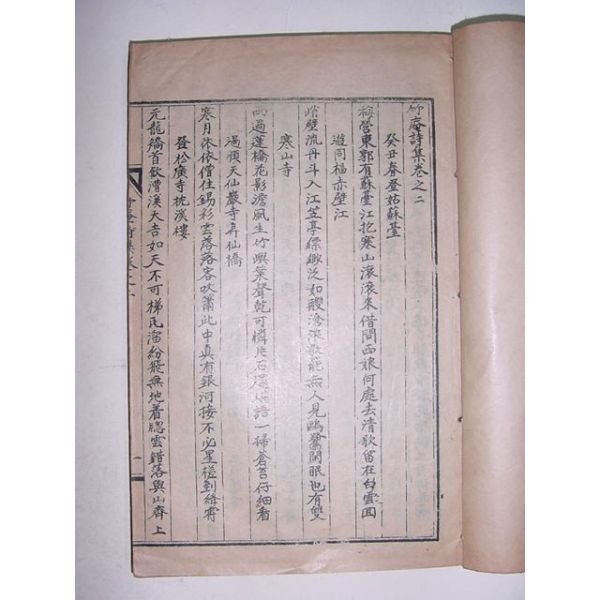 竹庵詩集卷之二
癸丑春登姑蘇臺
梅營東郭有蘇臺江抱寒山滾滾來借問西娘何處去清歌留在白雲回
遊同福赤壁江
壁流丹斗入江笠亭縹緲泛如艭滄浪歌罷無人見鷗鷺閒眼也有雙
寒山寺
雨過蓬橋花影澹風生竹興葉聲乾可憐片石還能語一掃蒼苔仔細看
過頓天仙巖寺昇仙橋
寒月依依僧住錫彩雲落落客吹簫此中真有銀河接不必星槎到絳霄
登松廣寺枕溪樓
元龍矯首飲漕溪天吉如天不可梯民溜紛飛無地着牕雲錯落與山齊上